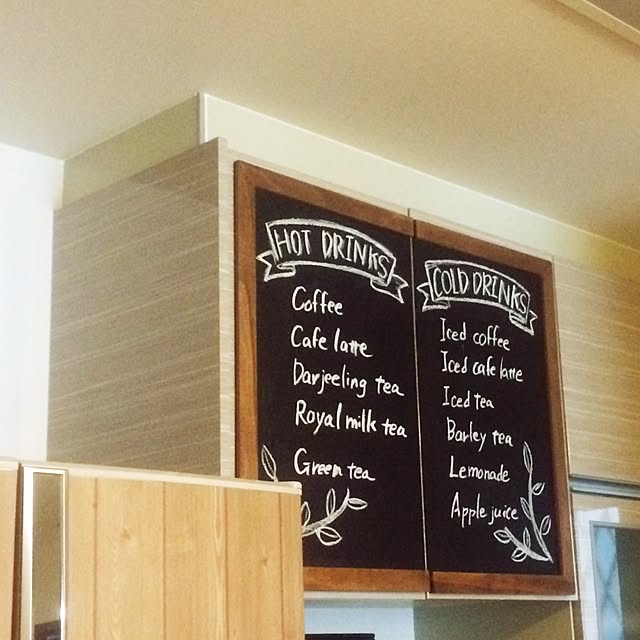 HOT DRINKS
Coffee
Cafe latte
Darjeeling tea
Royal milk tea
Green tea
COLD DRINKS
Iced coffee
Iced cafe latte
Iced tea
Barley tea
Lemonade
Apple juice